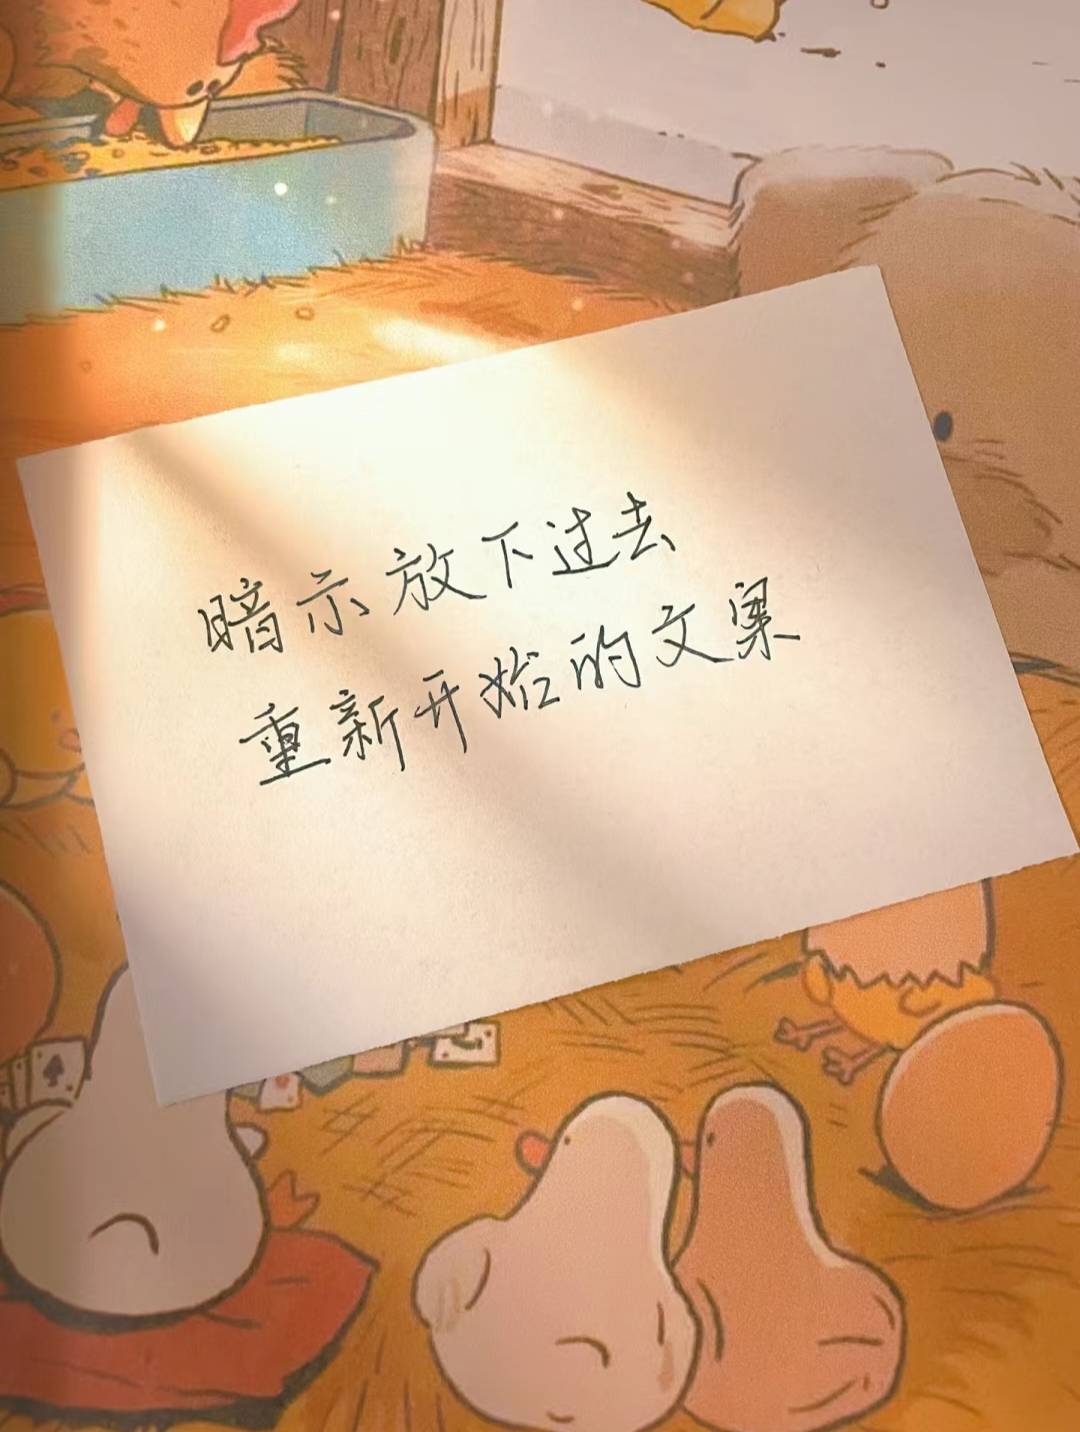 暗示放下过去
重新开始的文案